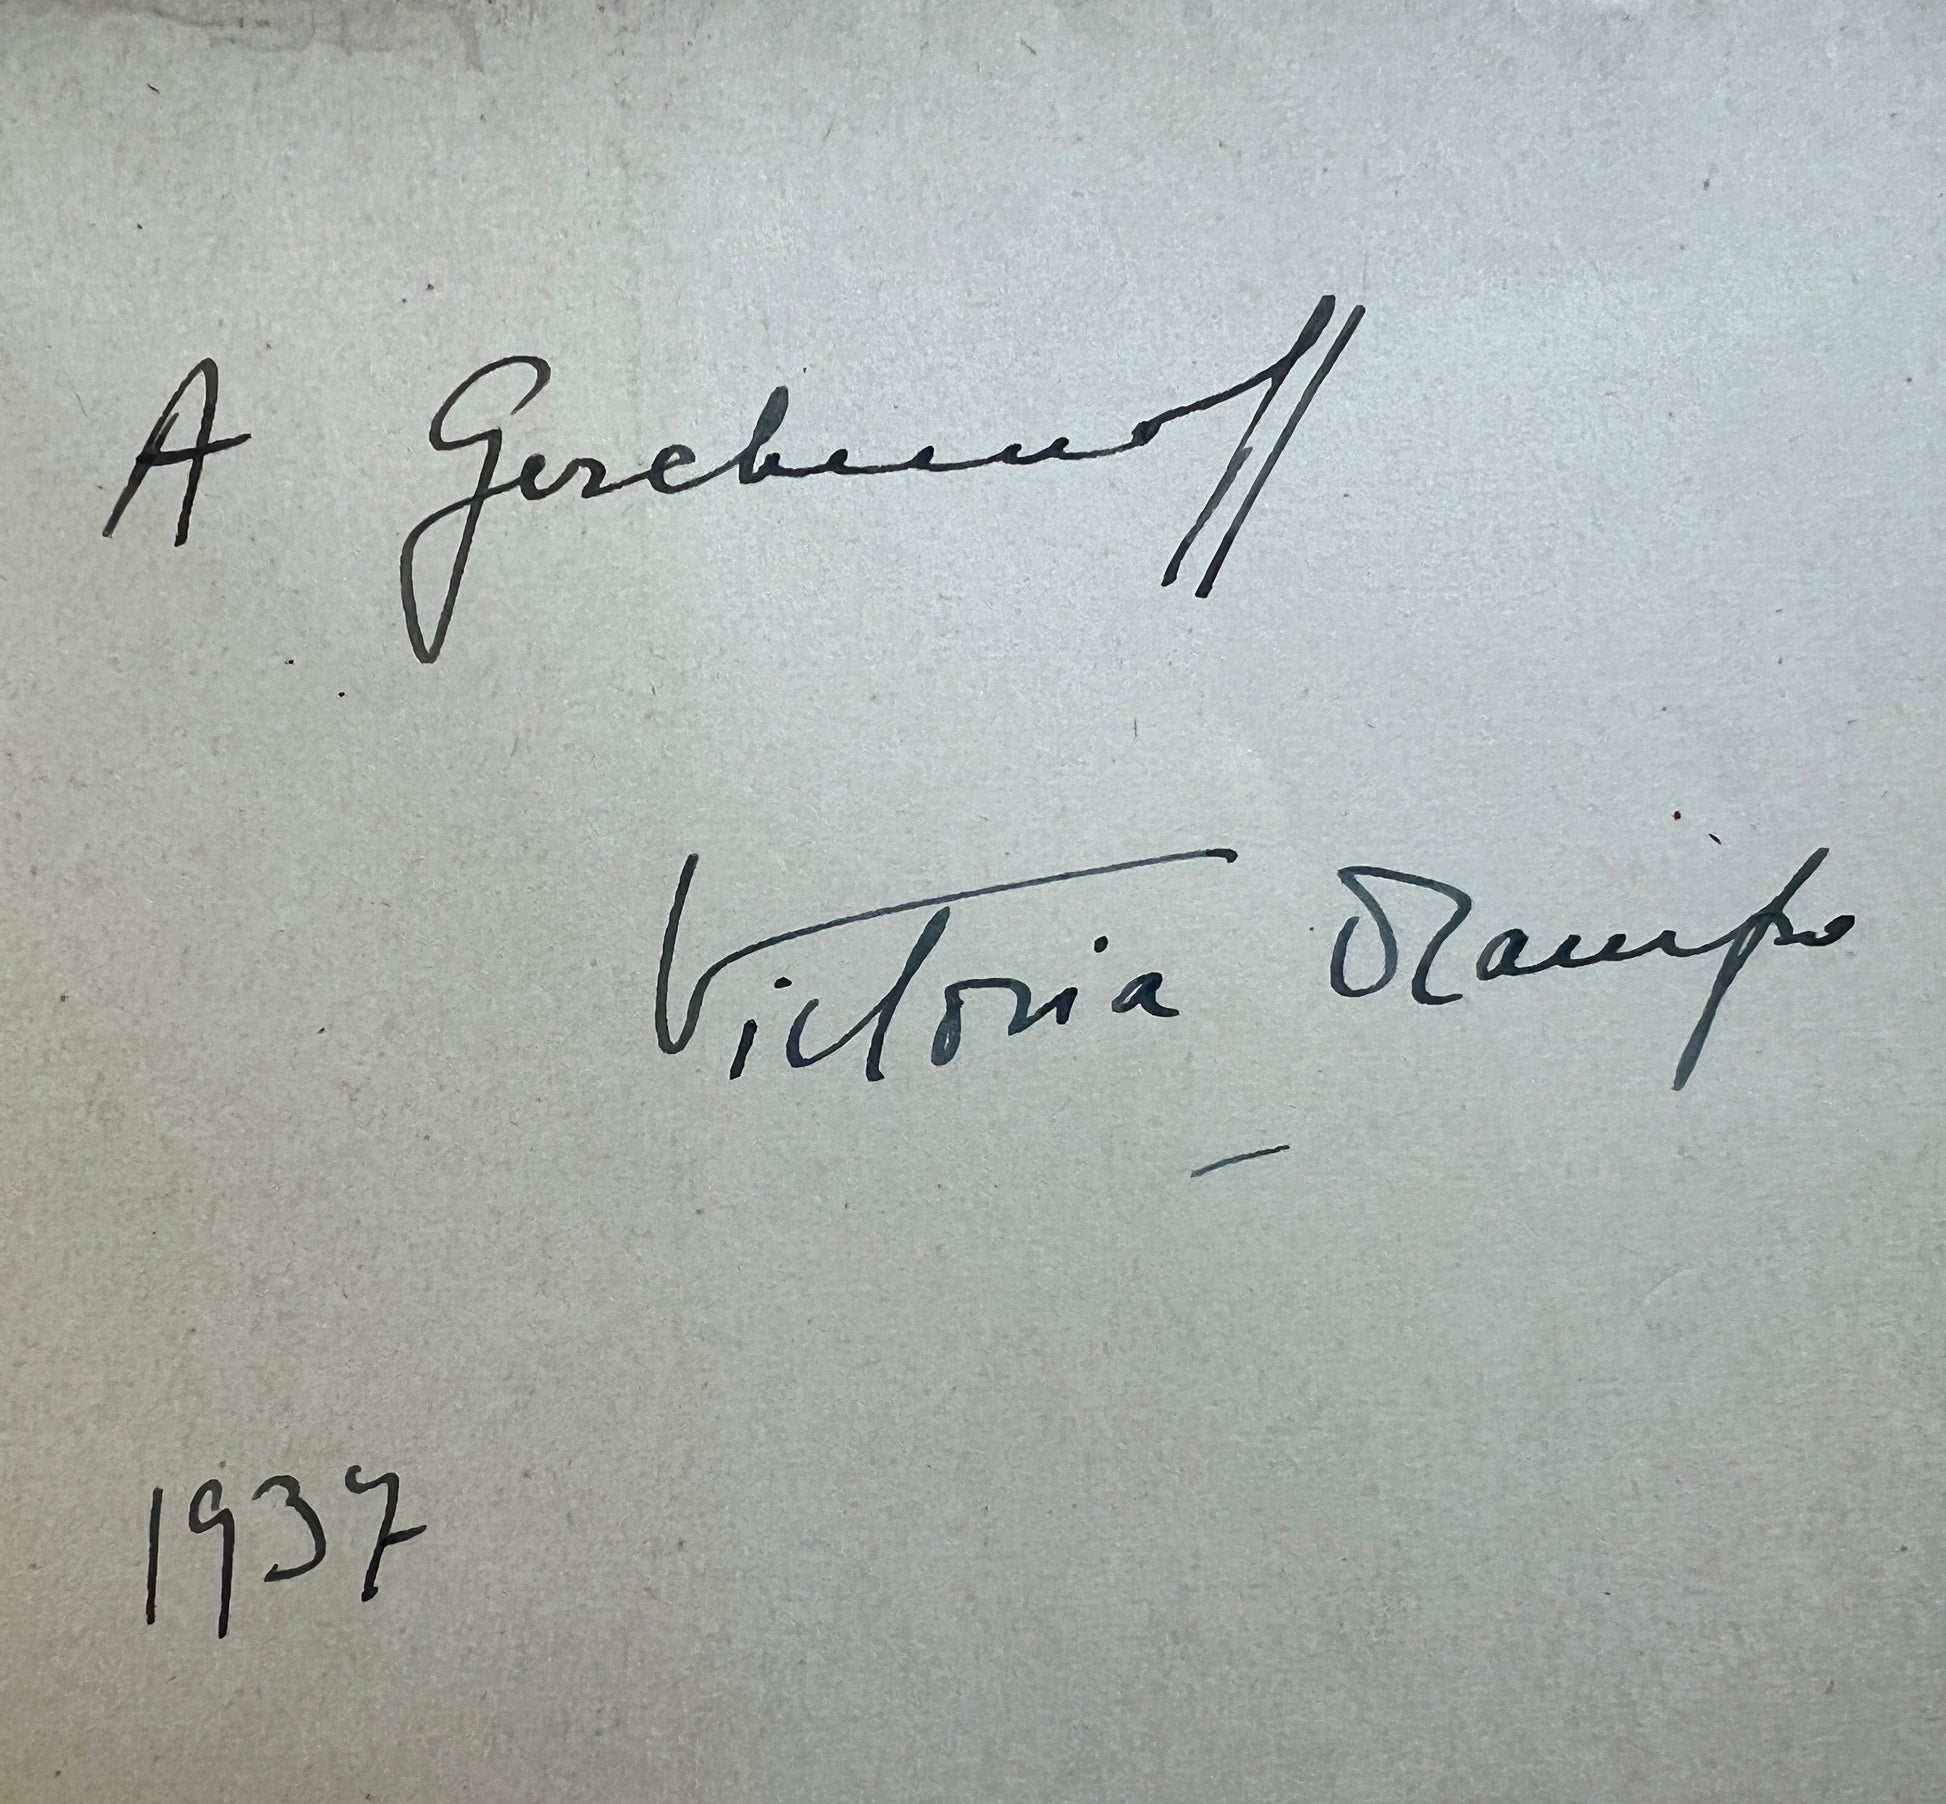 A Gerchunoff
Victoria Ocampo
1937